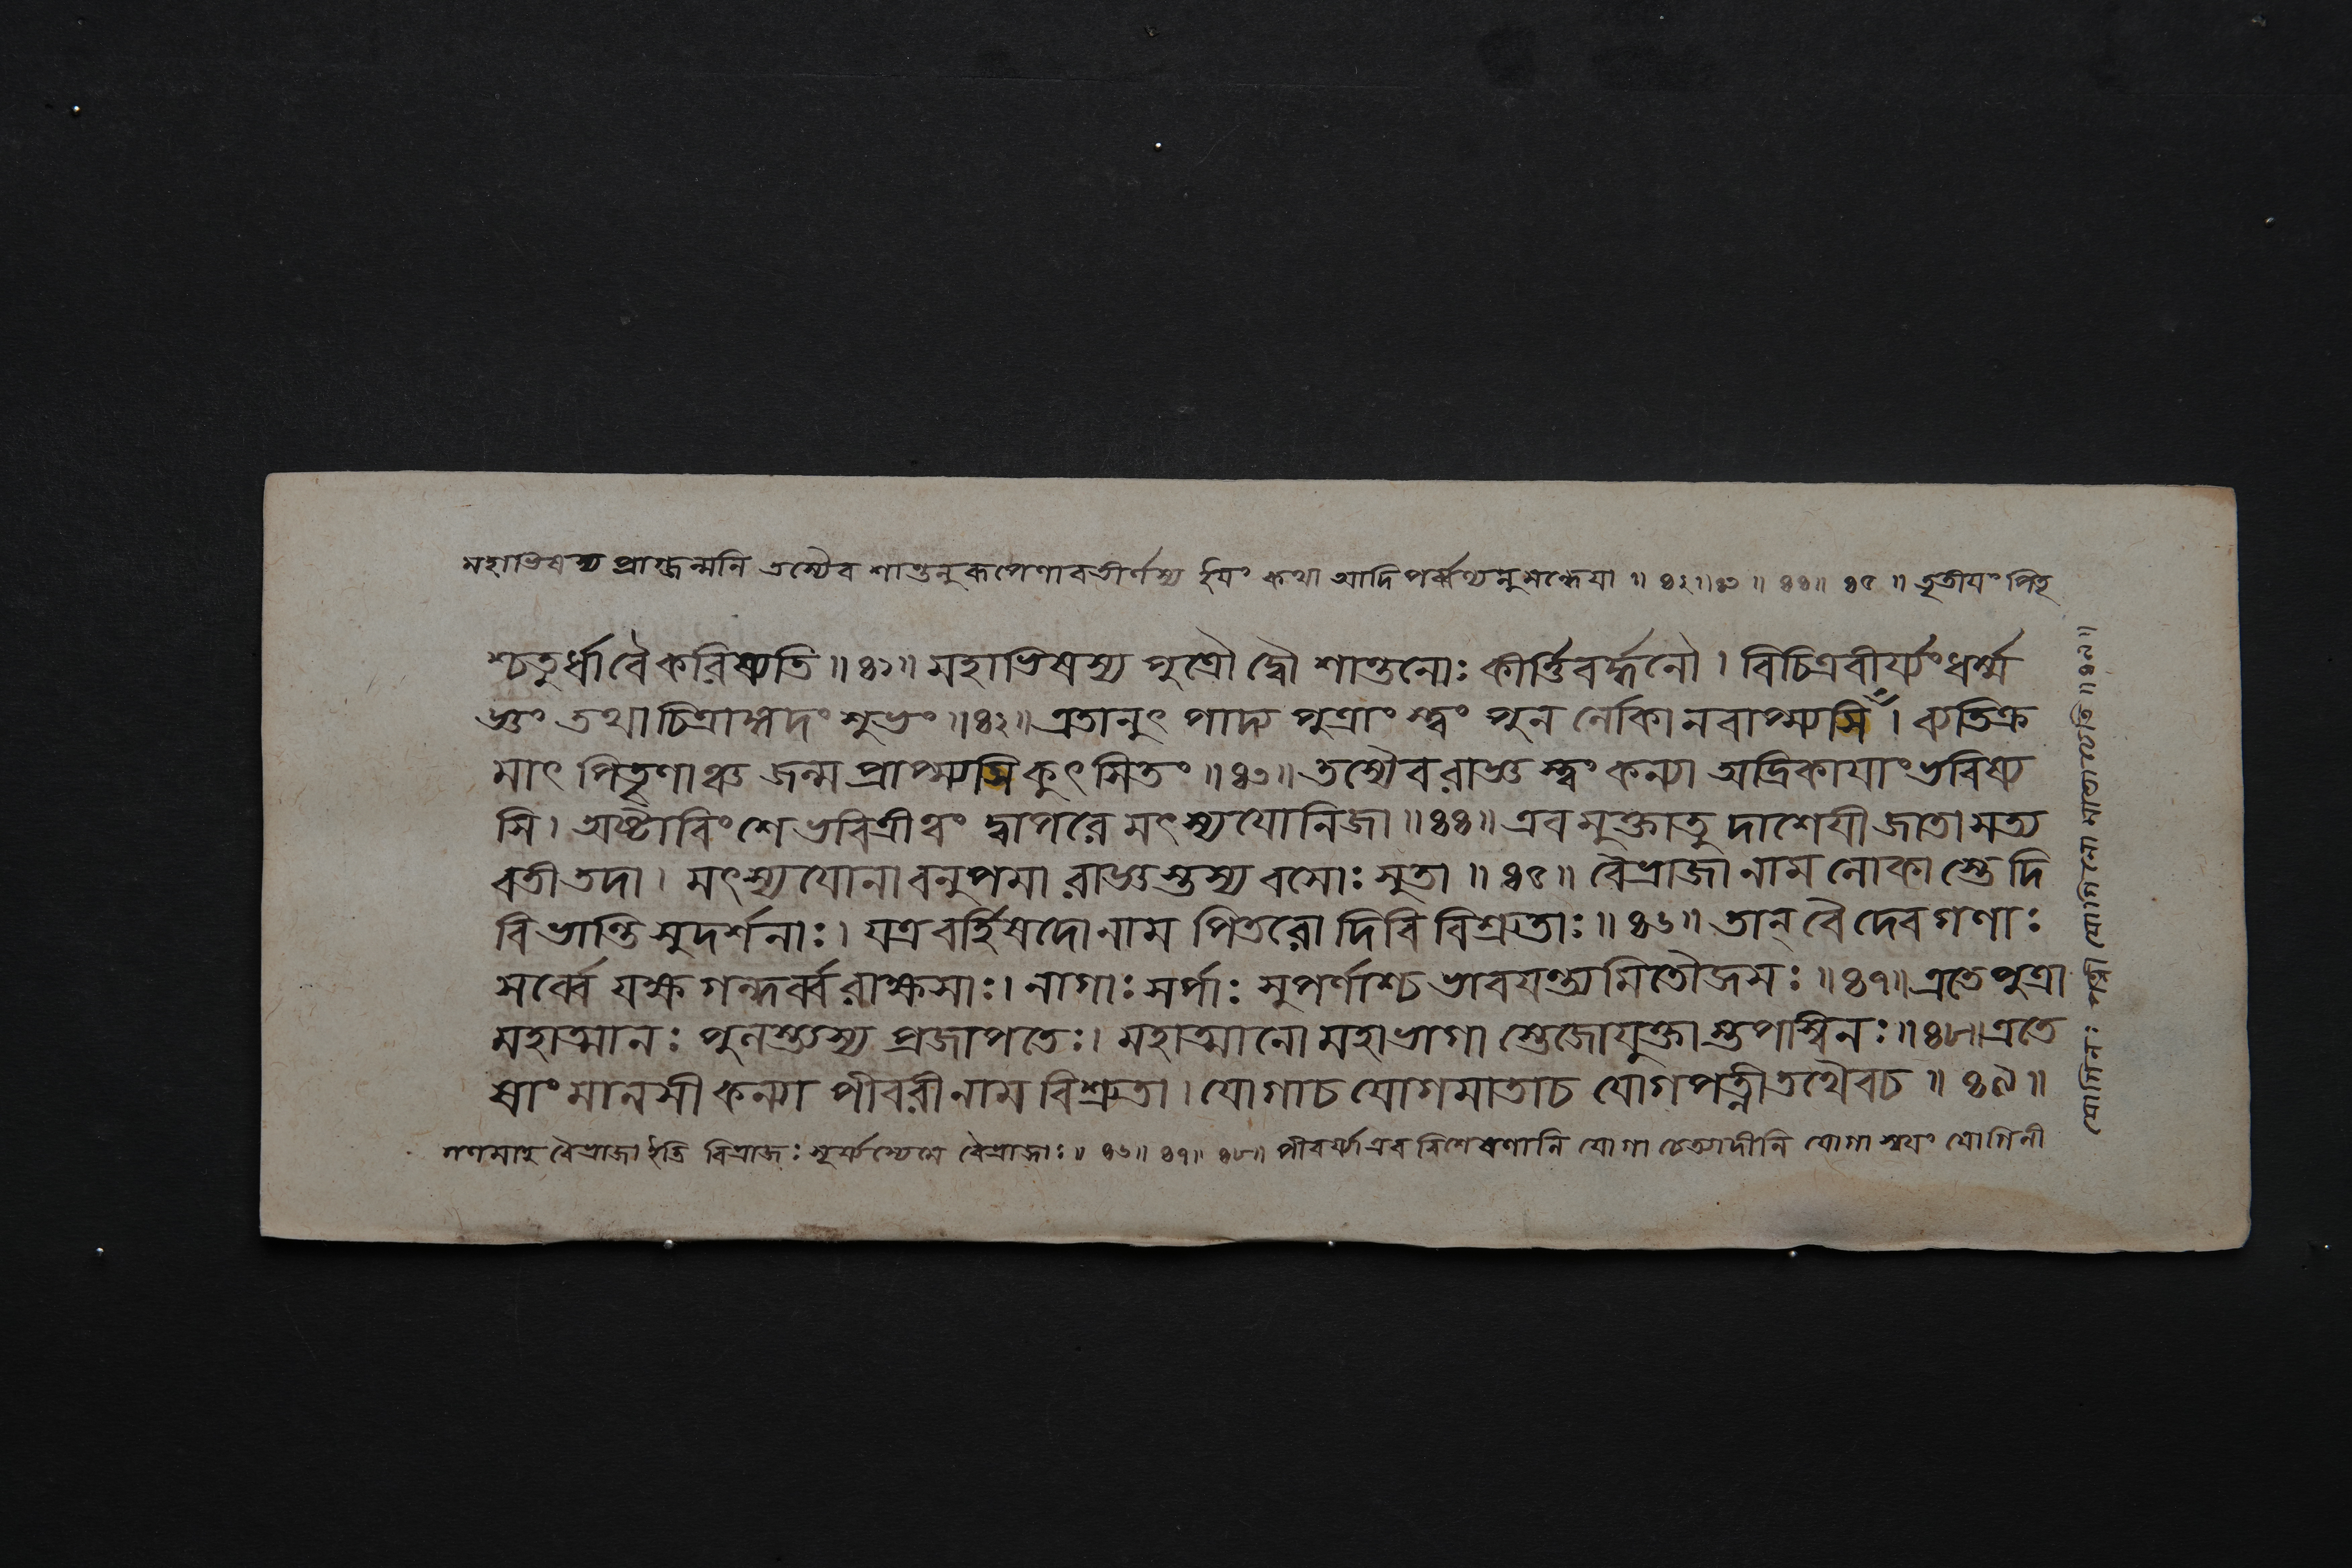 মহাভিষস্য প্রাগ্জন্মনি তস্যৈব শান্তনুরূপেণাবতীর্ণস্য ইয়ং কথা আদিপর্ব্বণ্যনুসন্ধেয়া ॥ ৪২॥ ৪৩ ॥ ৪৪॥ ৪৫ ॥ তৃতীয়ং পিতৃ
শ্চতুর্ধা বৈ করিষ্যতি ॥৪১॥ মহাভিষস্য পুত্রৌ দ্বৌ শান্তনোঃ কীর্ত্তিবর্দ্ধনৌ । বিচিত্রবীর্য্যং ধর্ম্ম
জ্ঞং তথা চিত্রাঙ্গদং শুভং ॥৪২॥ এতানুৎ পাদ্য পুত্রাং স্ত্বং পুন র্লোকা নবাপ্স্যসি । ব্যতিক্র
মাৎ পিতৄণাঞ্চ জন্ম প্রাপ্স্যসি কুৎসিতং ॥৪৩॥ তস্যৈব রাজ্ঞ স্ত্বং কন্যা অদ্রিকায়াং ভবিষ্য
সি । অষ্টাবিংশে ভবিত্রী ত্বং দ্বাপরে মৎস্যযোনিজা ॥৪৪॥ এবমুক্তা তু দাশেয়ী জাতা সত্য
বতী তদা । মৎস্যযোনাবনুপমা রাজ্ঞস্তস্য বসোঃ সুতা ॥ ৪৫ ॥ বৈভ্রাজা নাম লোকা স্তে দি
বি ভান্তি সুদর্শনাঃ । যত্র বর্হিষদো নাম পিতরো দিবি বিশ্রুতাঃ ॥ ৪৬॥ তান্ বৈ দেবগণাঃ
সর্ব্বে যক্ষ গন্ধর্ব্ব রাক্ষসাঃ । নাগাঃ সর্পাঃ সুপর্ণাশ্চ ভাবয়ন্ত্যমিতৌজসঃ ॥৪৭॥ এতে পুত্রা
মহাত্মানঃ পুলস্ত্যস্য প্রজাপতেঃ । মহাত্মানো মহাভাগা স্তেজোযুক্তা স্তপস্বিনঃ ॥৪৮॥ এতে
ষাং মানসী কন্যা পীবরী নাম বিশ্রুতা । যোগা চ যোগমাতা চ যোগপত্নী তথৈব চ ॥ ৪৯ ॥
গণমাহ বৈভ্রাজা ইতি বিভ্রাজঃ সূর্য্যস্যেমে বৈভ্রাজাঃ ॥ ৪৬॥ ৪৭॥ ৪৮॥ পীবর্য্যা এব বিশেষণানি যোগা চেত্যাদীনি যোগা স্বয়ং যোগিনী
যোগিনঃ পত্নী যোগিনো মাতা চেতি ॥ ৪৯॥